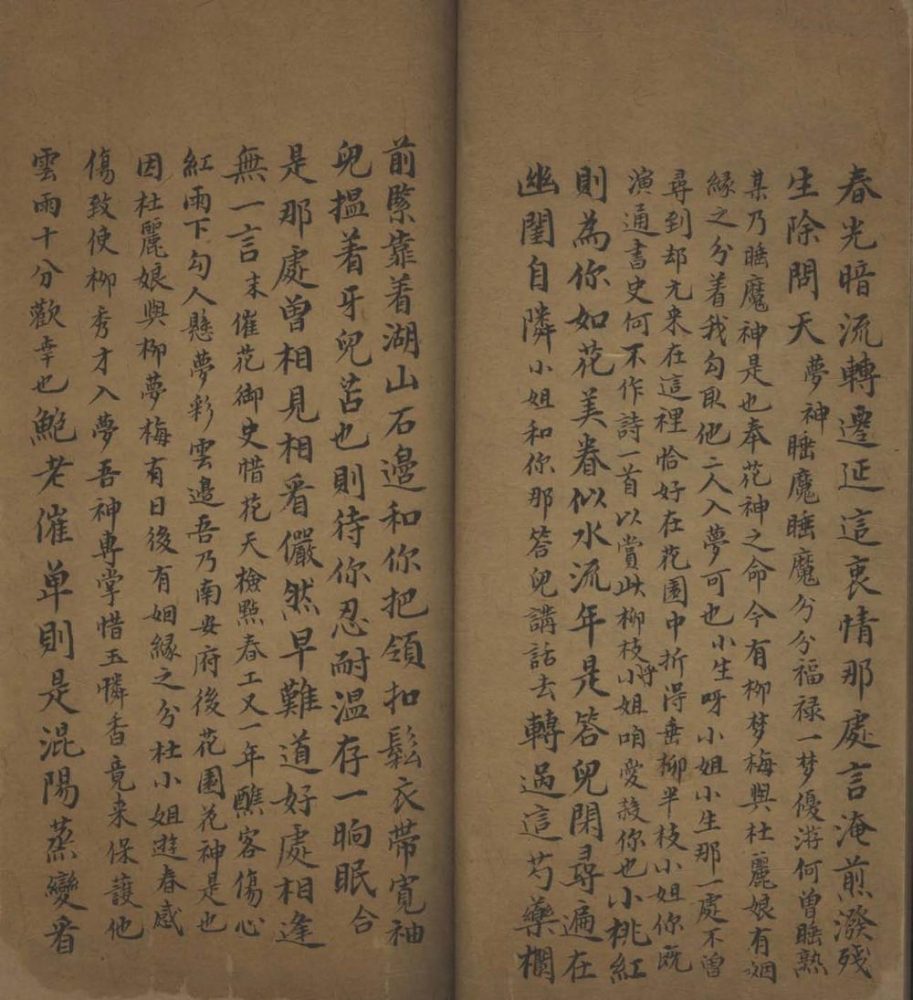 春光暗流轉遷延這衷情那處言淹煎潑殘
生除問天夢神睡魔睡魔分分福禄一梦優游何曾睡熟
某乃睡魔神是也奉花神之命今有柳梦梅與杜麗娘有姻
緣之分着我勾取他二人入夢可也小生呀小姐小生那一處不曾
尋到却元来在這裡恰好在花園中折淂垂柳半枝小姐你既
演通書史何不作詩一首以賞此柳枝㝵小姐咱愛殺你也小桃紅
則為你如花美眷似水流年是答兒閑尋遍在
幽閨自隣小姐和你那答兒講話去轉過這芍藥欄
前緊靠着湖山石邊和你把領扣鬆衣帶寬袖
兒揾着牙兒苫也則待你忍耐溫存一晌眠合
是那處曾相見相看儼然早難道好處相逢
無一言末催花御史惜花天檢點春工又一年醮客傷心
紅雨下勾人懸夢彩雲邊吾乃南安府後花園花神是也
因杜麗娘與柳夢梅有日後有姻緣之分杜小姐遊春感
傷致使柳秀才入夢吾神専掌惜玉憐香竟来保護他
雲雨十分歡幸也鮑老催单則是混陽蒸變看